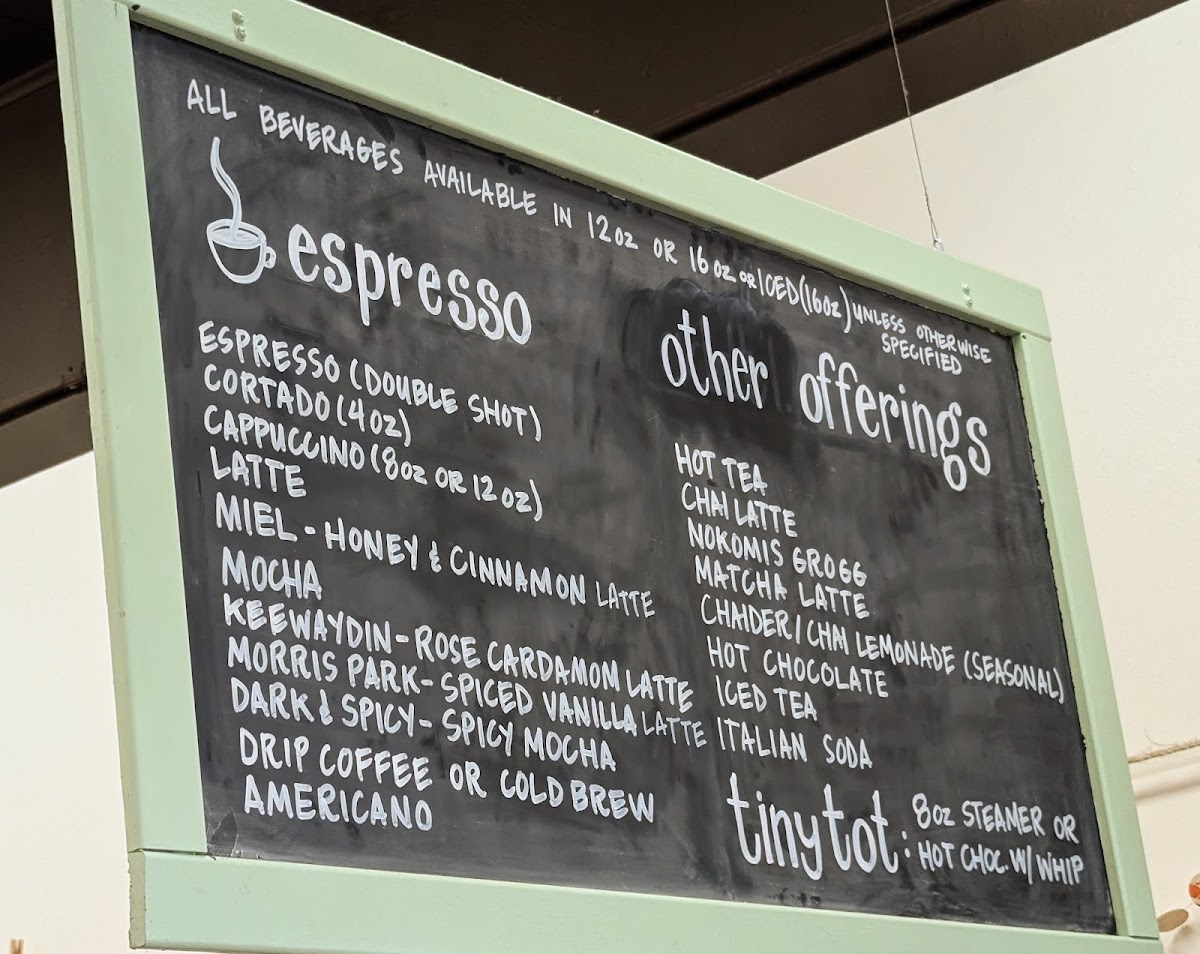 ALL BEVERAGES AVAILABLE IN 12OZ OR 16OZ OR ICED (16OZ) UNLESS OTHERWISE
SPECIFIED
espresso
ESPRESSO (DOUBLE SHOT)
CORTADO (4OZ)
CAPPUCCINO (8OZ OR 12OZ)
LATTE
MIEL - HONEY & CINNAMON LATTE
MOCHA
KEEWAYDIN - ROSE CARDAMOM LATTE
MORRIS PARK - SPICED VANILLA LATTE
DARK & SPICY - SPICY MOCHA
DRIP COFFEE OR COLD BREW
AMERICANO
other offerings
HOT TEA
CHAI LATTE
NOKOMIS GROGG
MATCHA LATTE
CHAIDER / CHAI LEMONADE (SEASONAL)
HOT CHOCOLATE
ICED TEA
ITALIAN SODA
tiny tot: 8OZ STEAMER OR
HOT CHOC. W/ WHIP